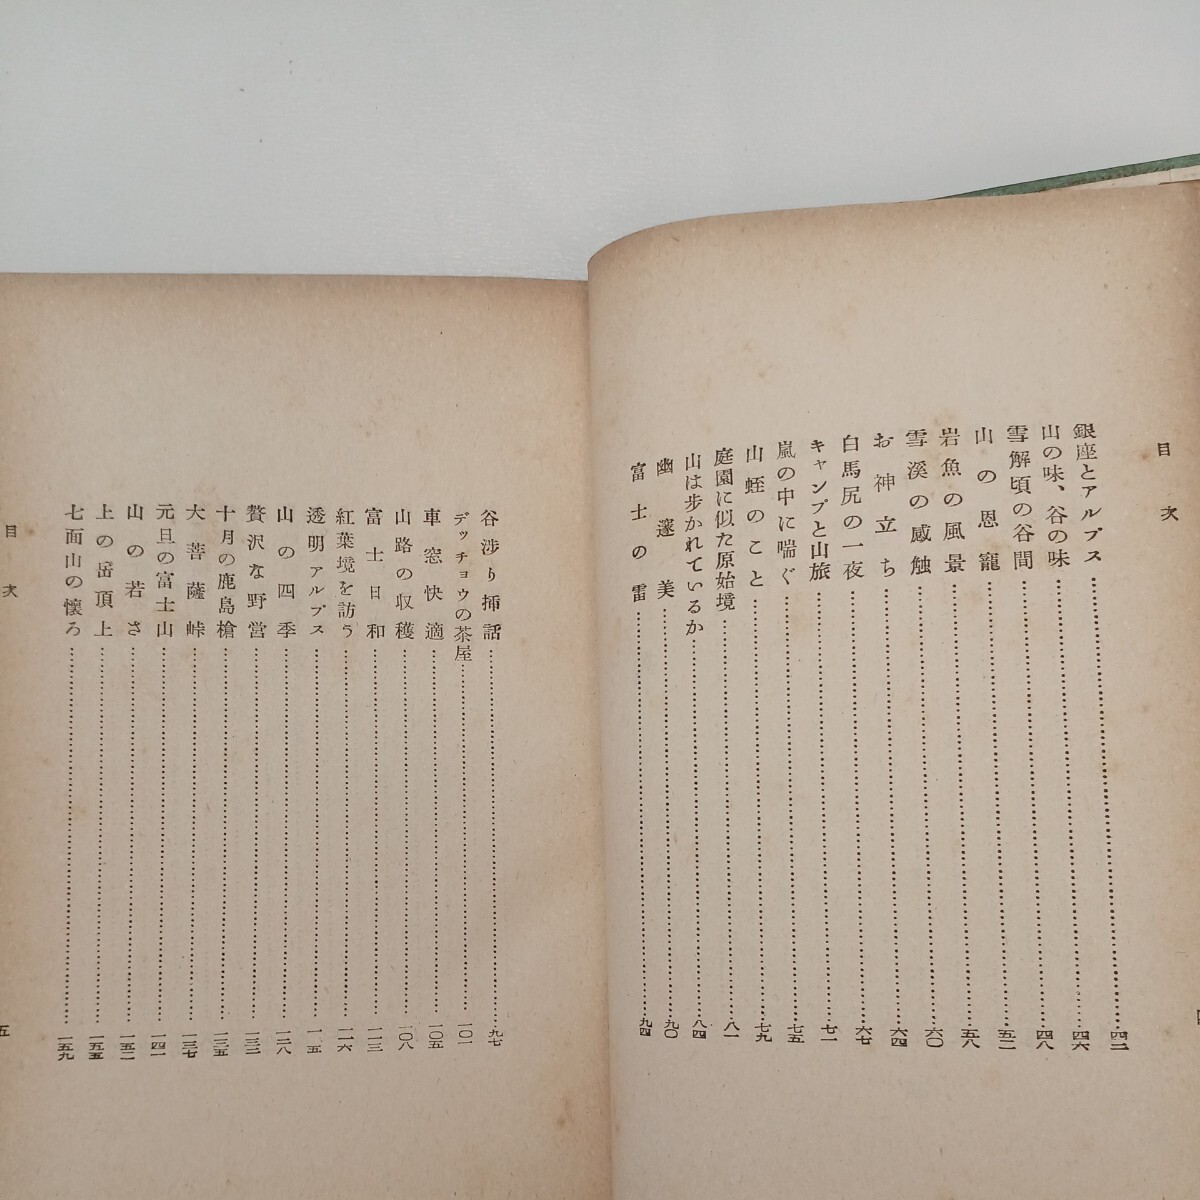 目次
銀座とアルプス……四二
山の味、谷の味……四六
雪解頃の谷間……四八
山の恩寵……五二
岩魚の風景……五八
雪溪の感触……六〇
お神立ち……六四
白馬尻の一夜……六七
キャンプと山旅……七一
嵐の中に喘ぐ……七五
山蛭のこと……七九
庭園に似た原始境……八一
山は步かれているか……八四
幽邃美……九〇
富士の雷……九四
谷渉り揷話……九七
デッチョウの茶屋……一〇一
車窓快適……一〇五
山路の収穫……一〇八
富士日和……一一三
紅葉境を訪う……一一六
透明アルプス……
山の四季……一二八
贅沢な野営……
十月の鹿島槍……
大菩薩峠……一三七
元旦の富士山……一四一
山の若さ……一五二
上の岳頂上……一五五
七面山の懐ろ……一五九
目次
五